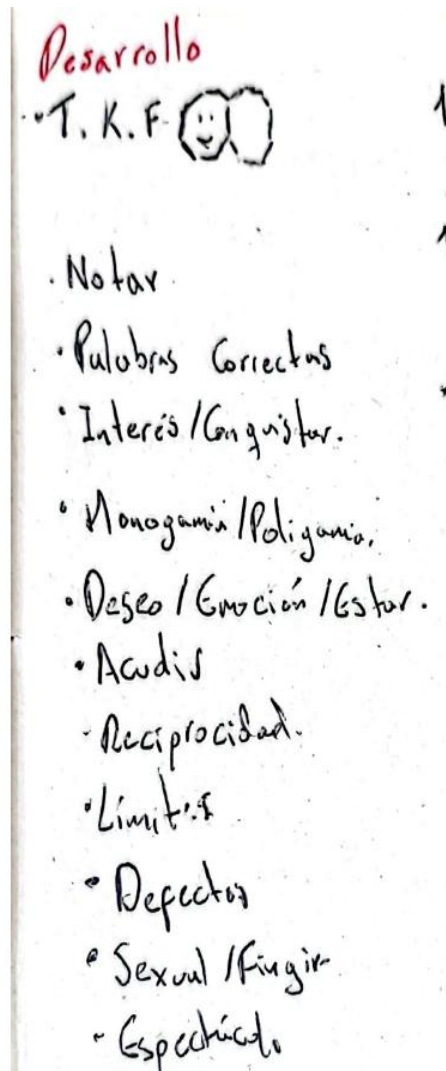 Desarrollo
· T. K. F.
· Notar
· Palabras Correctas
· Interés / Conquistar.
· Monogamia / Poligamia.
· Deseo / Emoción / Estar.
· Acudir
· Reciprocidad.
· Límites
· Defectos
· Sexual / Fingir
· Espectáculo